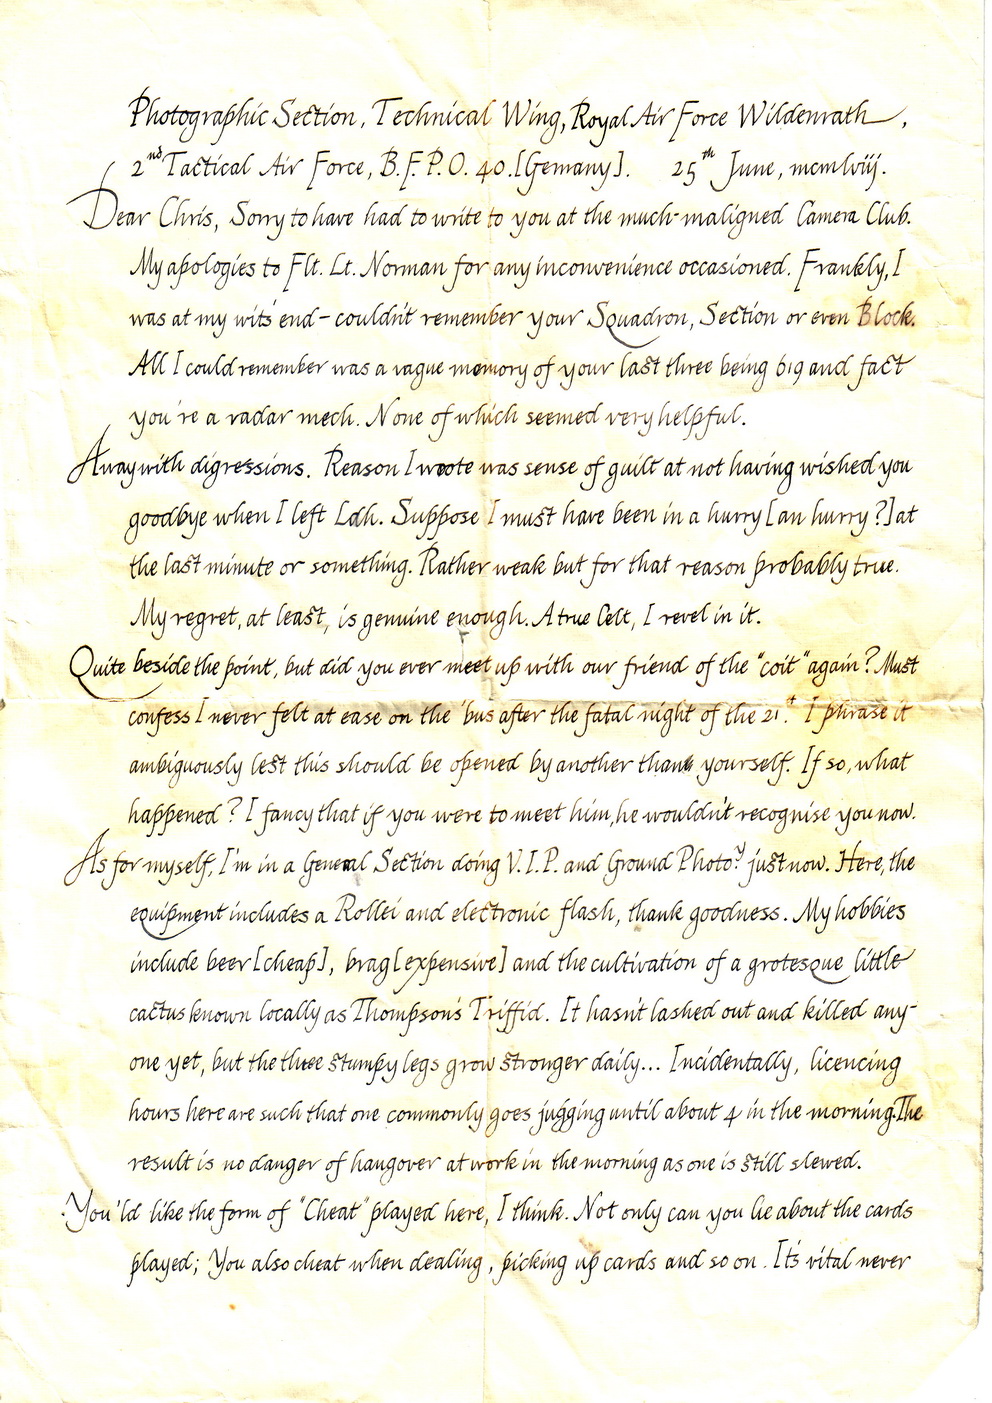 Photographic Section, Technical Wing, Royal Air Force Wildenrath,
2nd Tactical Air Force, B.F.P.O. 40. [Gemany]. 25th June, mcmlviij.
Dear Chris, Sorry to have had to write to you at the much-maligned Camera Club.
My apologies to Flt. Lt. Norman for any inconvenience occasioned. Frankly, I
was at my wits' end – couldn't remember your Squadron, Section or even Block.
All I could remember was a vague memory of your last three being 619 and fact
you're a radar mech. None of which seemed very helpful.
Away with digressions. Reason I wrote was sense of guilt at not having wished you
goodbye when I left Ldh. Suppose I must have been in a hurry [an hurry?] at
the last minute or something. Rather weak but for that reason probably true.
My regret, at least, is genuine enough. A true Celt, I revel in it.
Quite beside the point, but did you ever meet up with our friend of the "coit" again? Must
confess I never felt at ease on the 'bus after the fatal night of the 21st. I phrase it
ambiguously lest this should be opened by another than yourself. If so, what
happened? I fancy that if you were to meet him, he wouldn't recognise you now.
As for myself, I'm in a General Section doing V.I.P. and Ground Photoy just now. Here, the
equipment includes a Rollei and electronic flash, thank goodness. My hobbies
include beer [cheap], brag [expensive] and the cultivation of a grotesque little
cactus known locally as Thompson's Triffid. It hasn't lashed out and killed any-
one yet, but the three stumpy legs grow stronger daily... Incidentally, licencing
hours here are such that one commonly goes jugging until about 4 in the morning. The
result is no danger of hangover at work in the morning as one is still slewed.
You'ld like the form of "Cheat" played here, I think. Not only can you lie about the cards
played; You also cheat when dealing, picking up cards and so on. It's vital never